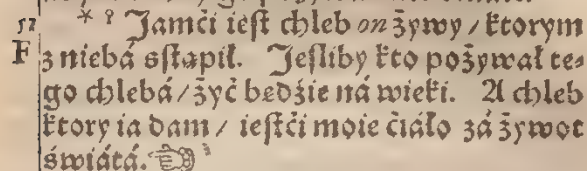 52 * ? Jamći ieſt chleb on żywy / ktorym
F z niebá zſtąpił. Jeſliby kto pożywał te⸗
go chlebá / żyć będźie ná wieki. A chleb
ktory ia dam / ieſtći moie ćiáło zá żywot
świátá. ☜